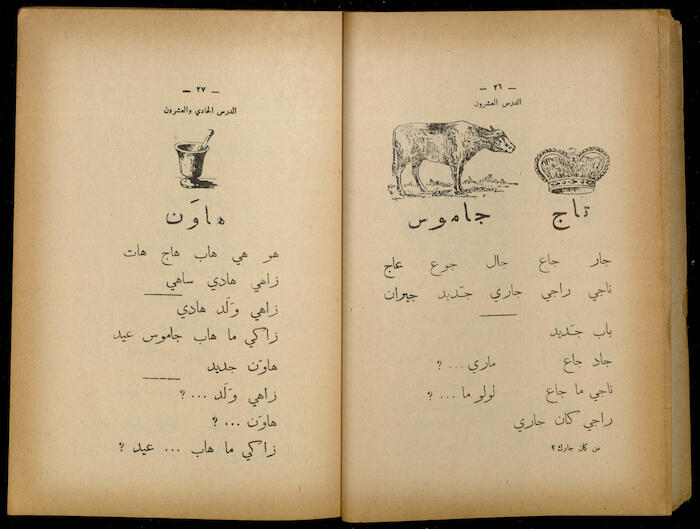 — ٢٦ —
الدرس العشرون
تاج جاموس
جار جاع جال جوع عاج
ناجي راجي جاري جديد جيران
باب جديد
جاد جاع ماري ... ؟
ناجي ما جاع لولو ما ... ؟
راجي كان جاري
من كان جارك ؟
— ٢٧ —
الدرس الحادي والعشرون
هاوَن
هو هي هاب هاج هات
زاهي هادي ساهي
زاهي وَلَد هادي
زاكي ما هاب جاموس عيد
هاوَن جديد
زاهي وَلَد ... ؟
هاوَن ... ؟
زاكي ما هاب ... عيد ؟